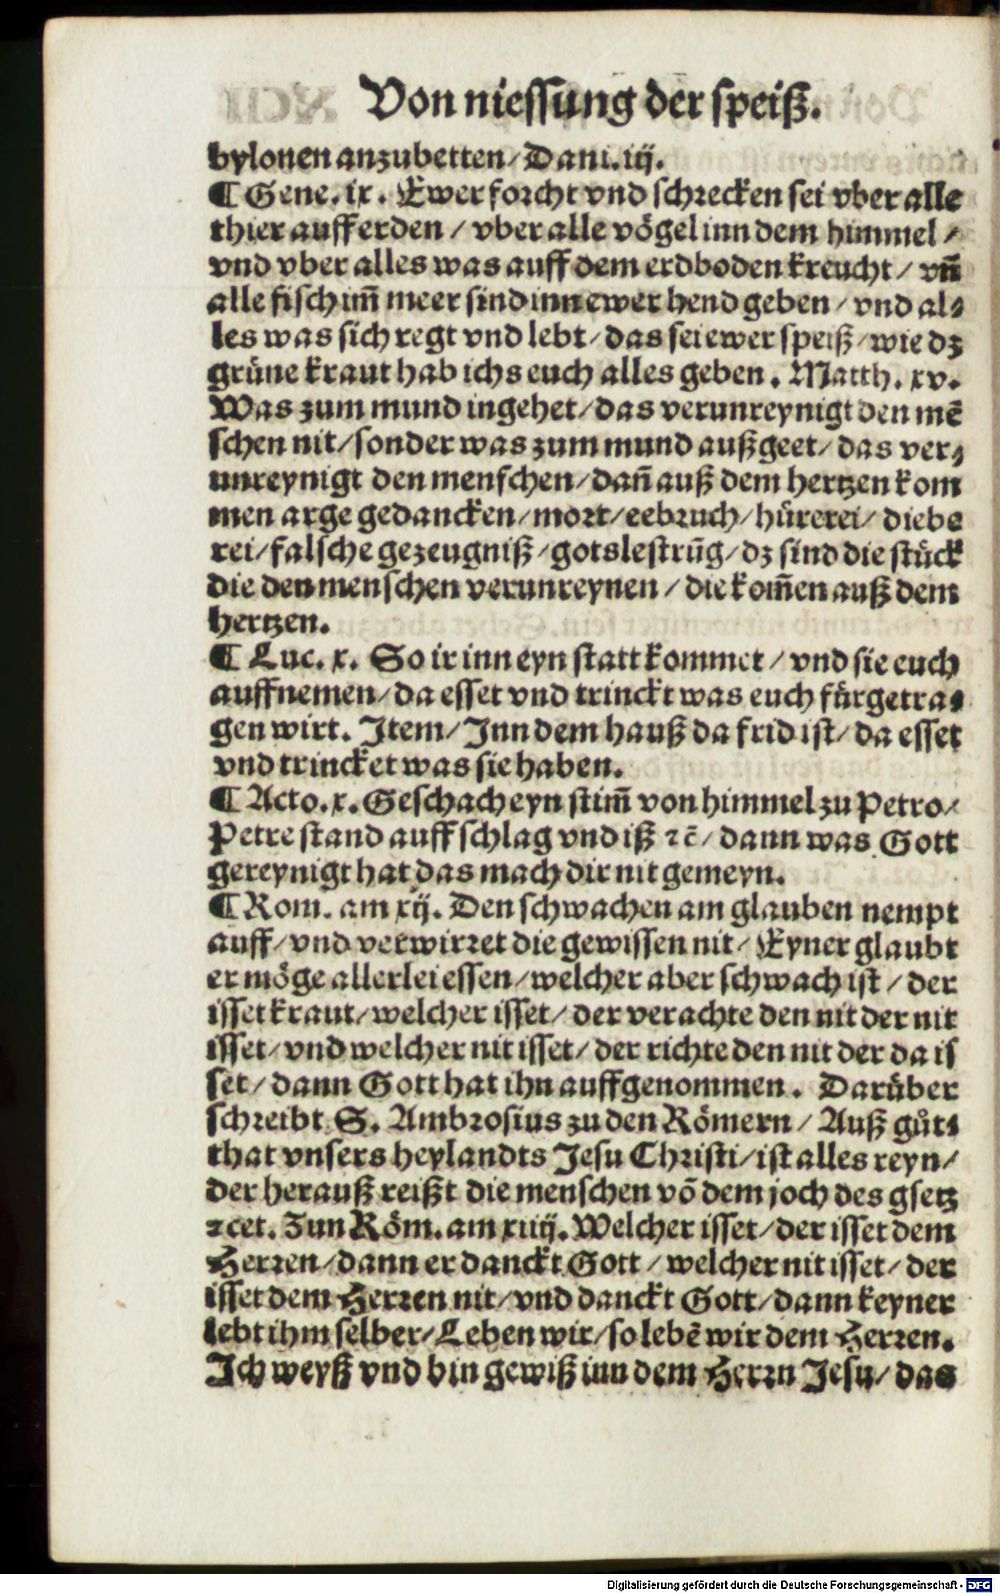 Von niessung der speiß.
bylonen anzubetten/ Dani. iij.
¶ Gene. ix. Ewer forcht vnd schrecken sei vber alle
thier auff erden / vber alle vögel inn dem himmel /
vnd vber alles was auff dem erdboden kreucht / vñ
alle fisch im̃ meer sind inn ewer hend geben / vnd al⸗
les was sich regt vnd lebt / das sei ewer speiß / wie dz
grüne kraut hab ichs euch alles geben. Matth. xv.
Was zum mund ingehet / das verunreynigt den mẽ
schen nit / sonder was zum mund außgeet / das ver⸗
unreynigt den menschen / dañ auß dem hertzen kom
men arge gedancken / mort / eebruch / hürerei / diebe
rei / falsche gezeugniß / gotslestrũg / dz sind die stück
die den menschen verunreynen / die kom̃en auß dem
hertzen.
¶ Luc. x. So ir inn eyn statt kommet / vnd sie euch
auffnemen / da esset vnd trinckt was euch fürgetra⸗
gen wirt. Item / Inn dem hauß da frid ist / da esset
vnd trincket was sie haben.
¶ Acto. x. Geschach eyn stim̃ von himmel zu Petro /
Petre stand auff schlag vnd iß ꝛc̃ / dann was Gott
gereynigt hat das mach dir nit gemeyn.
¶ Rom. am xij. Den schwachen am glauben nempt
auff / vnd verwirret die gewissen nit / Eyner glaubt
er möge allerlei essen / welcher aber schwach ist / der
isset kraut / welcher isset / der verachte den nit der nit
isset / vnd welcher nit isset / der richte den nit der da is
set / dann Gott hat ihn auffgenommen. Darüber
schreibt S. Ambrosius zu den Römern / Auß gůt⸗
that vnsers heylandts Jesu Christi / ist alles reyn /
der herauß reißt die menschen võ dem joch des gsetz
ꝛcet. Zun Röm. am xiiij. Welcher isset / der isset dem
Herren / dann er danckt Gott / welcher nit isset / der
isset dem Herren nit / vnd danckt Gott / dann keyner
lebt ihm selber / Leben wir / so lebẽ wir dem Herren.
Ich weyß vnd bin gewiß inn dem Herrn Jesu / das
Digitalisierung gefördert durch die Deutsche Forschungsgemeinschaft - DFG